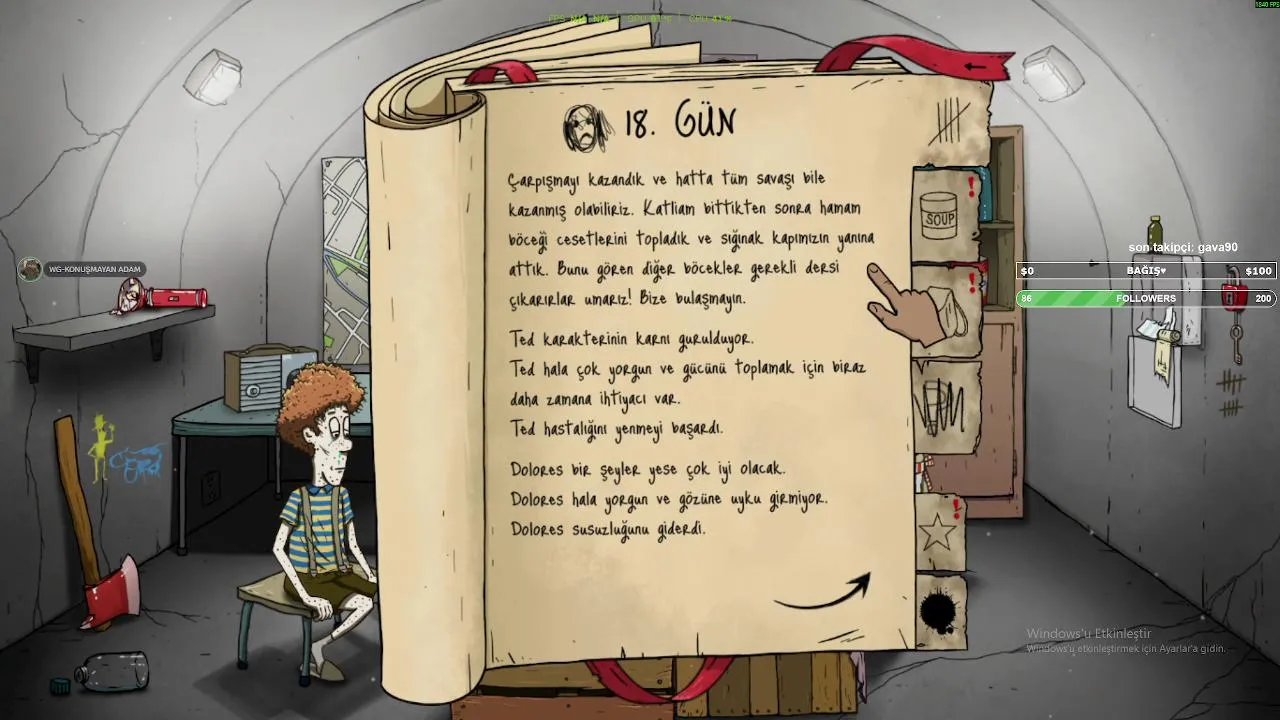 1840 FPS
18. GÜN
Çarpışmayı kazandık ve hatta tüm savaşı bile
kazanmış olabiliriz. Katliam bittikten sonra hamam
böceği cesetlerini topladık ve sığınak kapımızın yanına
attık. Bunu gören diğer böcekler gerekli dersi
çıkarırlar umarız! Bize bulaşmayın.
Ted karakterinin karnı gurulduyor.
Ted hala çok yorgun ve gücünü toplamak için biraz
daha zamana ihtiyacı var.
Ted hastalığını yenmeyi başardı.
Dolores bir şeyler yese çok iyi olacak.
Dolores hala yorgun ve gözüne uyku girmiyor.
Dolores susuzluğunu giderdi.
SOUP
WG-KONUŞMAYAN ADAM
son takipçi: gava90
$0 BAĞIŞ♥ $100
86 FOLLOWERS 200
Windows'u Etkinleştir
Windows'u etkinleştirmek için Ayarlar'a gidin.